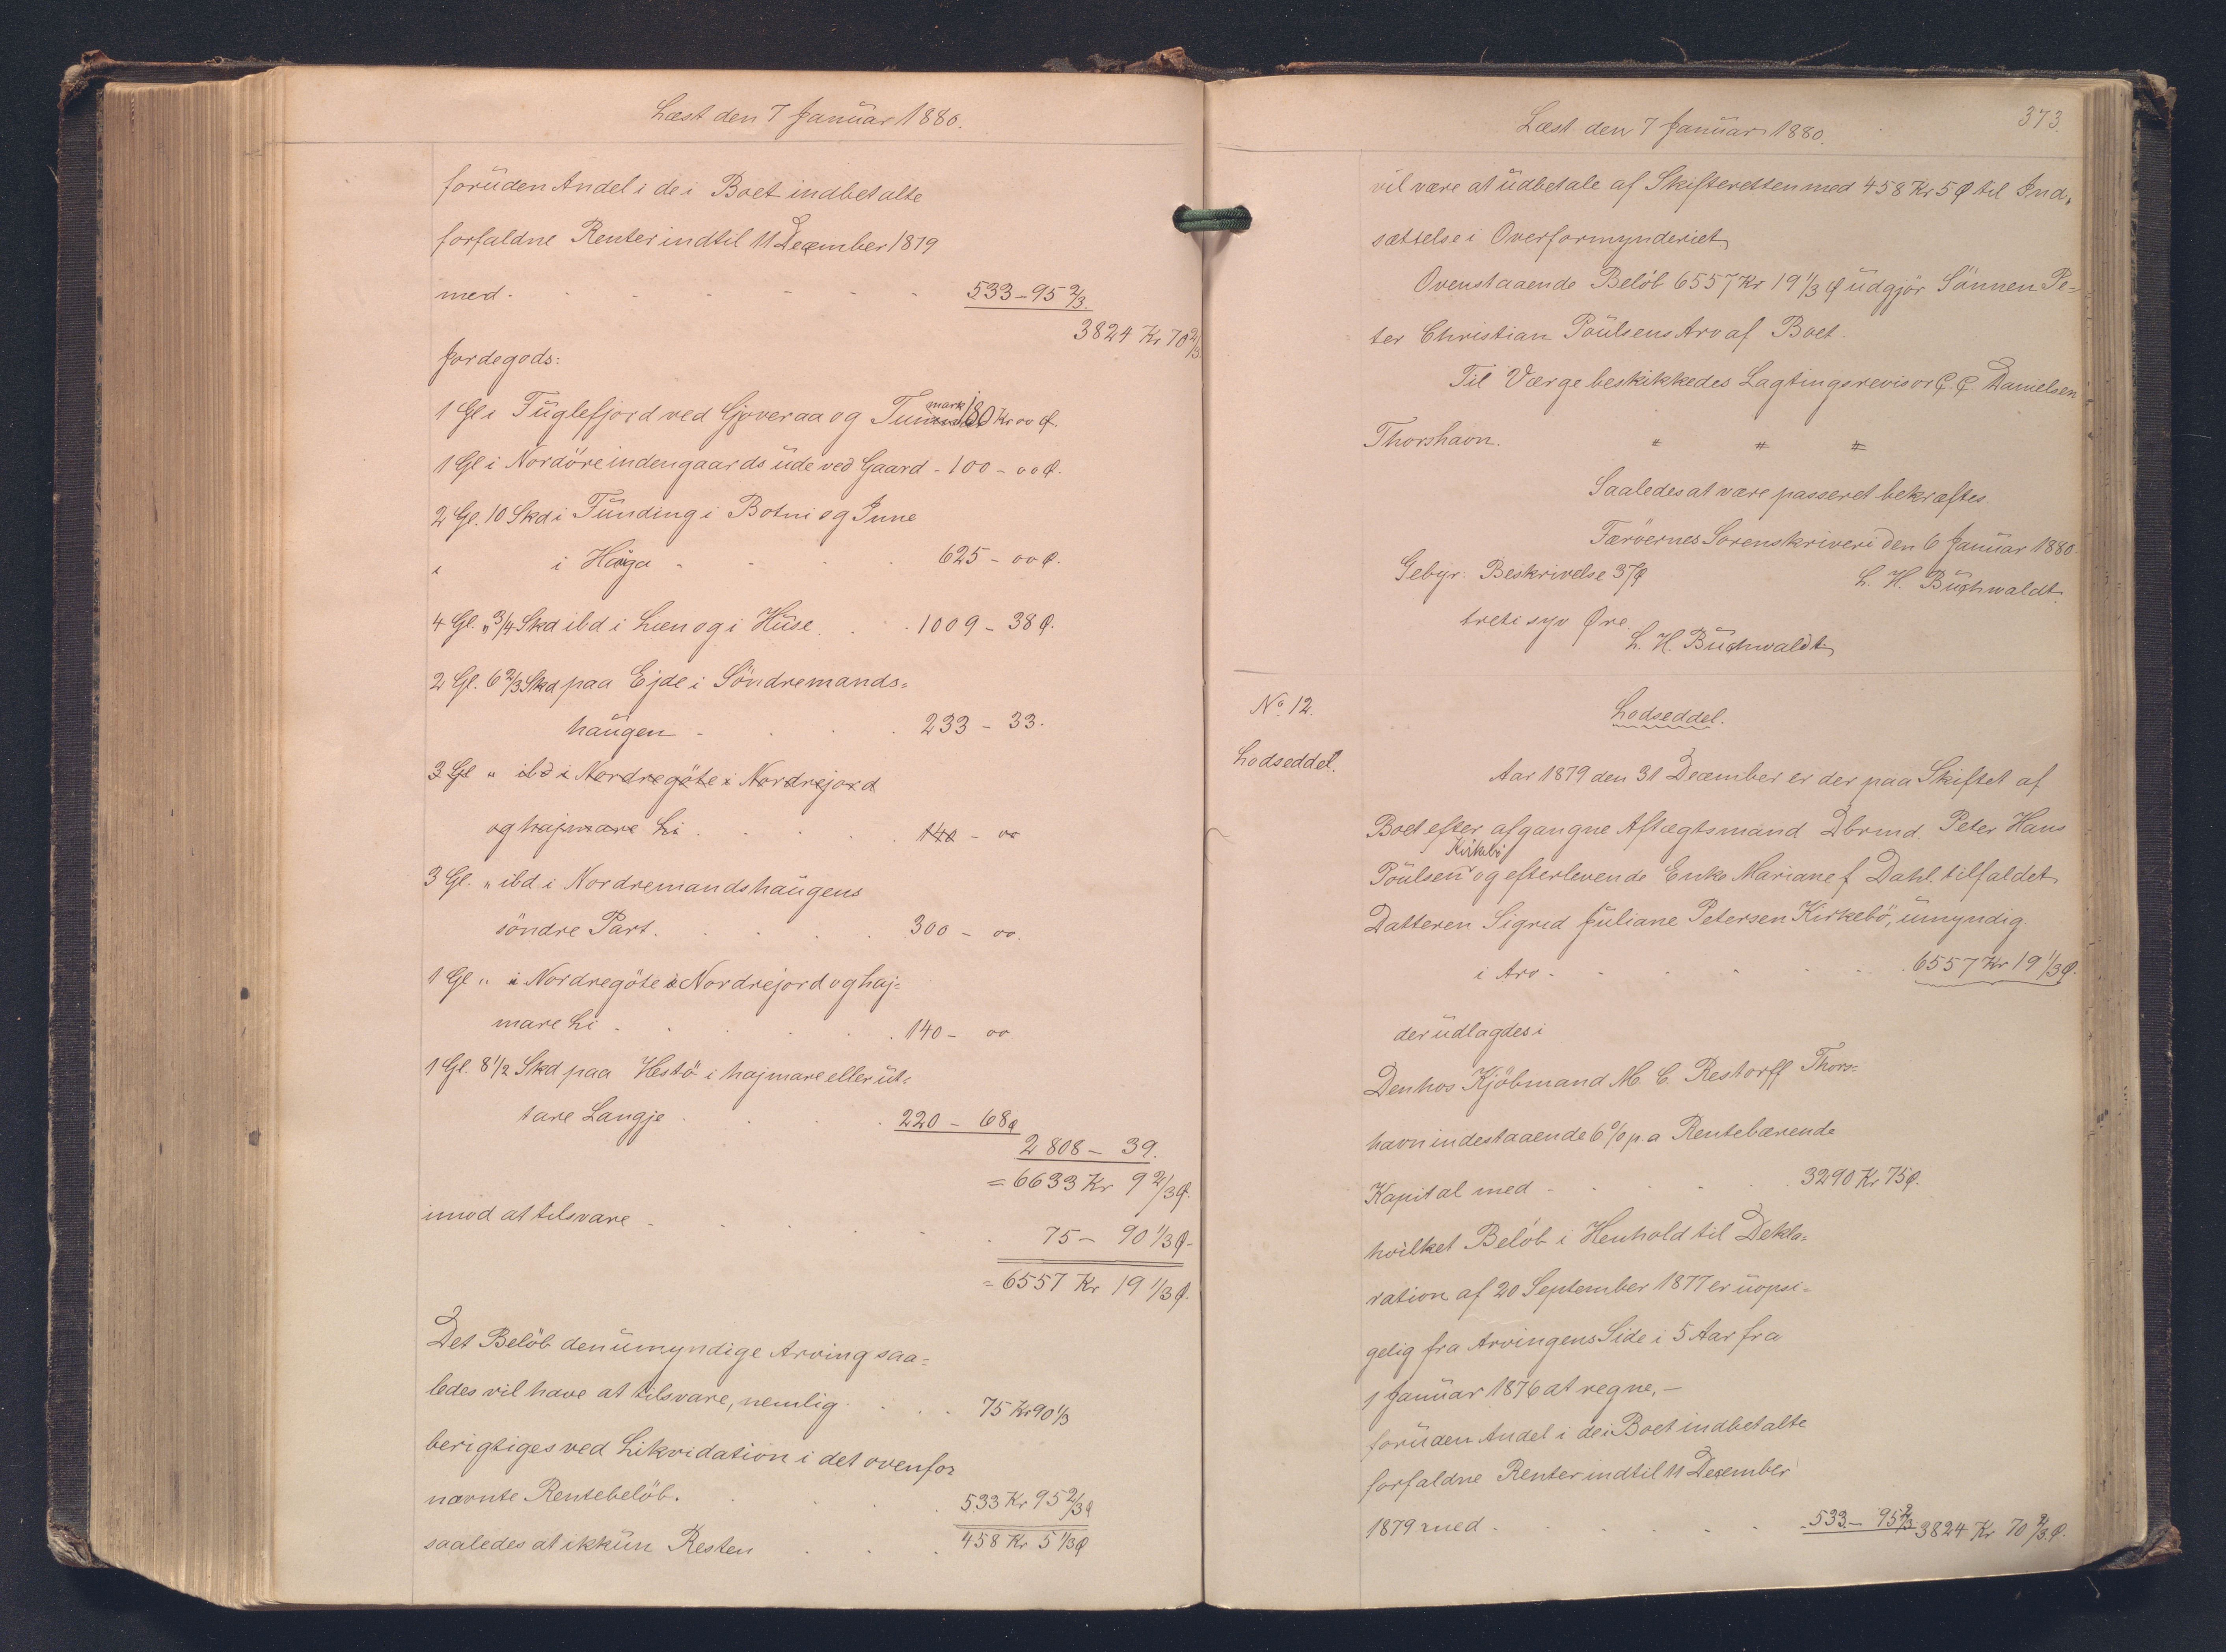 Læst den 7 Januar 1880.
foruden Andel i de i Boet indbetalte
forfaldne Renter indtil 11 December 1879
med - 533 - 95 2/3
3824 Kr 70 2/3
Jordegods:
1 Gl i Fuglefjord ved Gjøveraa og Tunmark 180 Kr 00 Ø.
1 Gl i Nordöre indengaards ude ved Gaard - 100 - 00 Ø.
2 Gl. 10 Skd i Funding i Botni og Inne
i Haga - 625 - 00 Ø.
4 Gl. " 3/4 Skd ibd i Læn og i Huse. 1009 - 38 Ø.
2 Gl. 6 2/3 Skd paa Ejde i Söndremands=
haugen - 233 - 33.
3 Gl " ibd i Nordregöte i Nordrejord
og hajmare Li . 140 - 00
3 Gl. " ibd i Nordremandshaugens
söndre Part. 300 - 00.
1 Gl " i Nordregöte i Nordrejord og haj=
mare Li . 140 - 00
1 Gl. 8 1/2 Skd paa Hestö i hajmare eller ut=
tare Langje . 220 - 68 Ø
2808 - 39.
= 6633 Kr 9 2/3 Ø.
imod at tilsvare - 75 - 90 1/3 Ø -
= 6557 Kr 19 1/3 Ø.
Det Belöb den umyndige Arving saa=
ledes vil have at tilsvare, nemlig . 75 Kr 90 1/3
berigtiges ved Likvidation i det ovenfor
nævnte Rentebelöb. 533 Kr 95 2/3 Ø
saaledes at ikkun Resten . 458 Kr 5 1/3 Ø
373.
Læst den 7 Januar 1880.
vil være at udbetale af Skifteretten med 458 Kr 5 Ø til Ind=
sættelse i Overformynderiet
Ovenstaaende Belöb 6557 Kr 19 1/3 Ø udgjör Sönnen Pe=
ter Christian Poulsens Arv af Boet.
Til Værge beskikkedes Lagtingsrevisor C. C. Danielsen
Thorshavn. # # #
Saaledes at være passeret bekræftes.
Færöernes Sorenskriveri den 6 Januar 1880.
Gebyr: Beskrivelse 37 Ø
L. H. Buchwaldt.
treti syv Øre.
L. H. Buchwaldt
No. 12.
Lodseddel.
Lodseddel.
Aar 1879 den 31 December er der paa Skiftet af
Boet efter afgangne Aftægtsmand Dbrmd. Peter Hans
Kirkebö
Poulsen og efterlevende Enke Mariane f. Dahl. tilfaldet
Datteren Sigrid Juliane Petersen Kirkebö, umyndig
i Arv - 6557 Kr 19 1/3 Ø.
der udlagdes i
Den hos Kjöbmand M. C. Restorff Thors=
havn indestaaende 6 % p. a Rentebærende
Kapital med - 3290 Kr 75 Ø.
hvilket Belöb i Henhold til Dekla=
ration af 20 September 1877 er uopsi=
gelig fra Arvingens Side i 5 Aar fra
1 Januar 1876 at regne, -
foruden Andel i de i Boet indbetalte
forfaldne Renter indtil 11 December
1879 med . 533 - 95 2/3 3824 Kr 70 2/3 Ø.